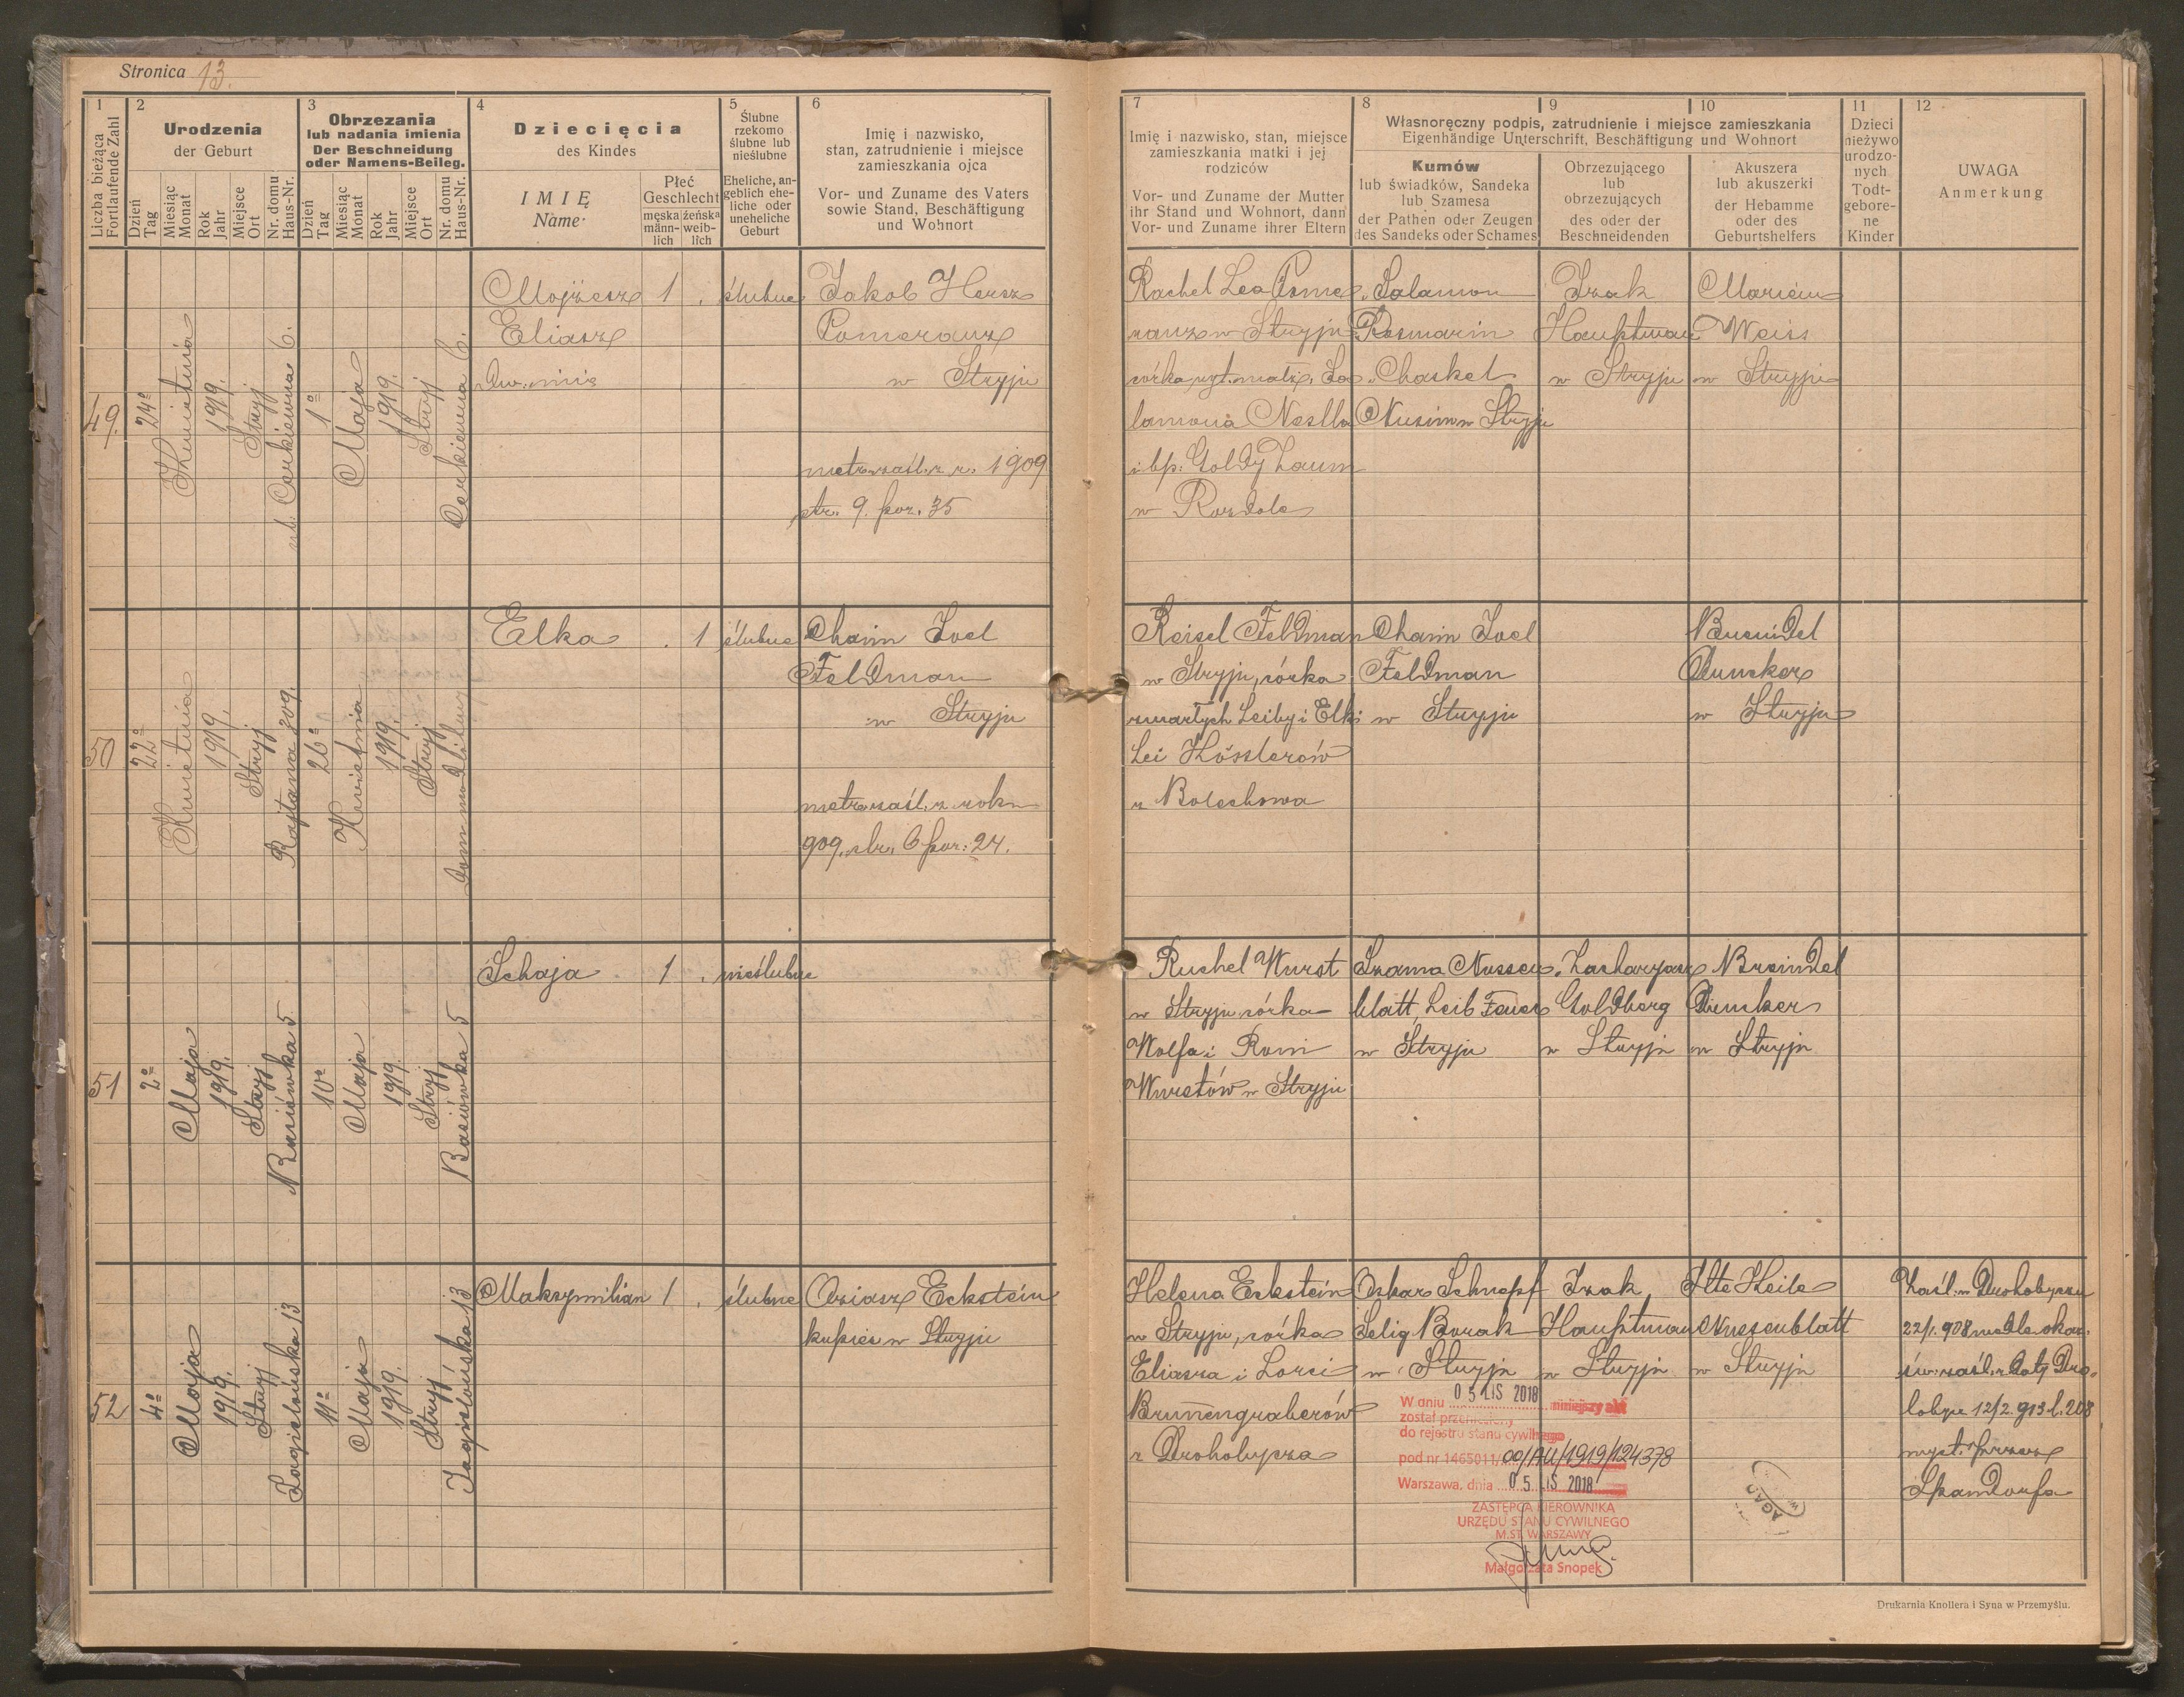 Stronica 13.
1
Liczba bieżąca
Fortlaufende Zahl
2
Urodzenia
der Geburt
Dzień
Tag
Miesiąc
Monat
Rok
Jahr
Miejsce
Ort
Nr. domu
Haus-Nr.
3
Obrzezania
lub nadania imienia
Der Beschneidung
oder Namens-Beileg.
Dzień
Tag
Miesiąc
Monat
Rok
Jahr
Miejsce
Ort
Nr. domu
Haus-Nr.
4
Dziecięcia
des Kindes
IMIĘ
Name
Płeć
Geschlecht
męska
männ-
lich
żeńska
weib-
lich
5
Ślubne
rzekomo
ślubne lub
nieślubne
Eheliche, an-
geblich ehe-
liche oder
uneheliche
Geburt
6
Imię i nazwisko,
stan, zatrudnienie i miejsce
zamieszkania ojca
Vor- und Zuname des Vaters
sowie Stand, Beschäftigung
und Wohnort
7
Imię i nazwisko, stan, miejsce
zamieszkania matki i jej
rodziców
Vor- und Zuname der Mutter
ihr Stand und Wohnort, dann
Vor- und Zuname ihrer Eltern
8
9
10
Własnoręczny podpis, zatrudnienie i miejsce zamieszkania
Eigenhändige Unterschrift, Beschäftigung und Wohnort
Kumów
lub świadków, Sandeka
lub Szamesa
der Pathen oder Zeugen
des Sandeks oder Schames
Obrzezującego
lub
obrzezujących
des oder der
Beschneidenden
Akuszera
lub akuszerki
der Hebamme
oder des
Geburtshelfers
11
Dzieci
nieżywo
urodzo-
nych
Todt-
gebore-
ne
Kinder
12
UWAGA
Anmerkung
49.
24º
Kwietnia
1919.
Stryj
ul. Cerkiewna 6.
1º
Maja
1919.
Stryj
Cerkiewna 6.
Mojżesz
Eliasz
Dw. imię
1
.
ślubne
Jakob Hersz
Pomeranz
w Stryju
metr. zaśl. z r. 1909
str. 9. poz. 35
Rachel Lea Pome
ranz w Stryju
córka ryt. małż. Sa
lamona Nestla
i bp. Goldy Laum
w Rozdole
Salamon
Rosmarin
Chaskel
Nusim w Stryju
Izak
Hauptman
w Stryju
Mariem
Weiss
w Stryju
50
22º
Kwietnia
1919.
Stryj
Rajtana 209.
26º
Kwietnia
1919.
Stryj
Dom modlitwy
Elka
.
1
ślubne
Chaim Joel
Feldman
w Stryju
metr. zaśl. z roku
909. str. 6 poz: 24.
Reisel Feldman
w Stryju, córka
zmarłych Leiby i Elki
Lei Hösslerów
z Bolechowa
Chaim Joel
Feldman
w Stryju
Breindel
Dumker
w Stryju
51
2º
Maja
1919.
Stryj
Basiówka 5
10º
Maja
1919.
Stryj
Basiówka 5
Schaja
1
.
nieślubne
Ruchel Wurst
w Stryju córka
Wolfa i Romi
Wurstów w Stryju
Szama Nussen
blatt, Leib Feuer
w Stryju
Zacharyasz
Goldberg
w Stryju
Breindel
Dumker
w Stryju
52
4º
Maja
1919.
Stryj
Jagielońska 13
11º
Maja
1919.
Stryj
Jagielońska 13
Maksymilian
1
.
ślubne
Oziasz Eckstein
kupiec w Stryju
Helena Eckstein
w Stryju, córka
Eliasza i Lorci
Brunnengraberów
z Drohobycza
Oskar Schnepf
Selig Borak
w Stryju
Izak
Hauptman
w Stryju
Ite Heile
Nussenblatt
w Stryju
Zaśl. w Drohobyczu
22/1. 908 wedle okaz.
św. zaśl. z daty Dro-
hobycz 12/2. 913 l. 208
wyst. przez
Spandorfa
W dniu 05 LIS 2018 niniejszy akt
został przeniesiony
do rejestru stanu cywilnego
pod nr 1465011/00/AU/1919/124378
Warszawa, dnia 05 LIS 2018
ZASTĘPCA KIEROWNIKA
URZĘDU STANU CYWILNEGO
M.ST. WARSZAWY
Małgorzata Snopek
AGAD
Drukarnia Knollera i Syna w Przemyślu.